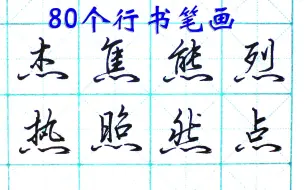 80个行书笔画
杰焦熊烈
热照然点